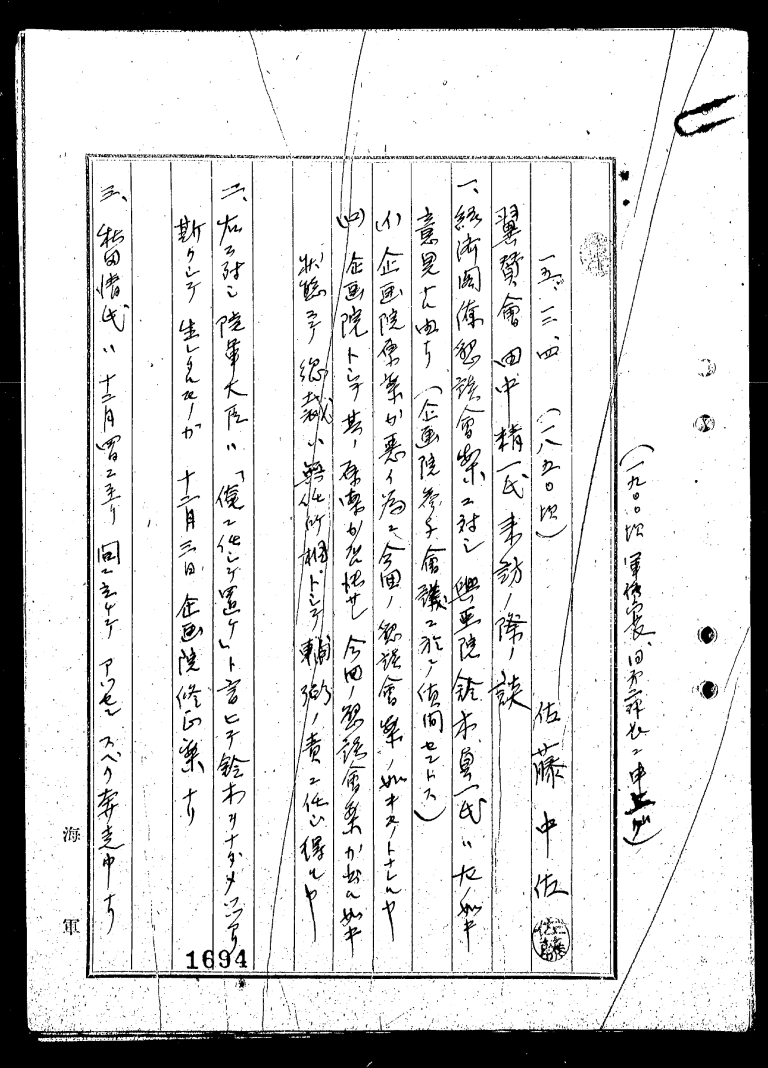 (一九〇〇頃 軍務局長、同第二課長ニ申上グ)
一五、一二、四 (一八五〇頃) 佐藤中佐
翼賛會 田中精一氏来訪ノ際ノ談
一、経済閣僚懇談會案ニ対シ 興亜院鈴木貞一氏ハ左ノ如キ
意見ナル由ナリ (企画院参与會議ニ於テ質問セントス)
(イ)企画院原案ガ悪イ為ニ今回ノ懇談會案ノ如キモノトナルヤ
(ロ)企画院トシテ其ノ原案ガ 今回ノ懇談會案ガ出ル如キ
状態ニテ 総裁ハ無任所相トシテ 輔弼ノ責ニ任ジ得ルヤ
二、右ニ対シ 陸軍大臣ハ「俺ニ任シテ置ケ」ト言ヒテ鈴木ヲナダメ
斯クシテ生レタルモノガ 十二月三日 企画院修正案ナリ
三、松田情氏ハ 十二月 間ニ立チテ アツセンスベク奔走中ナリ
海軍
1694